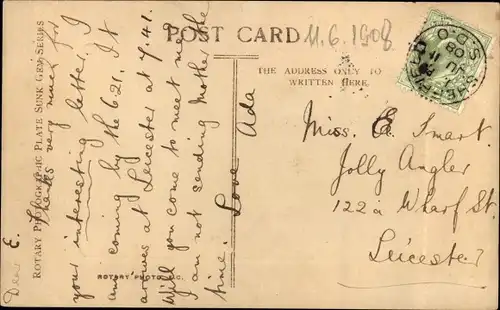 POST CARD
11.6.1908
THE ADDRESS ONLY TO
WRITTEN HERE.
SHEFFIELD
JU 11
08
S.D.O
ROTARY PHOTOGRAPHIC PLATE SUNK GEM SERIES
ROTARY PHOTO, E.C.
Dear E.
Thanks very much for
your interesting letter, I
am coming by the 6.21. It
arrives at Leicester at 7.41.
Will you come to meet me. I
am not sending Mother the
time. Love
Ada
Miss. E. Smart.
Jolly Angler
122a Wharf St
Leicester